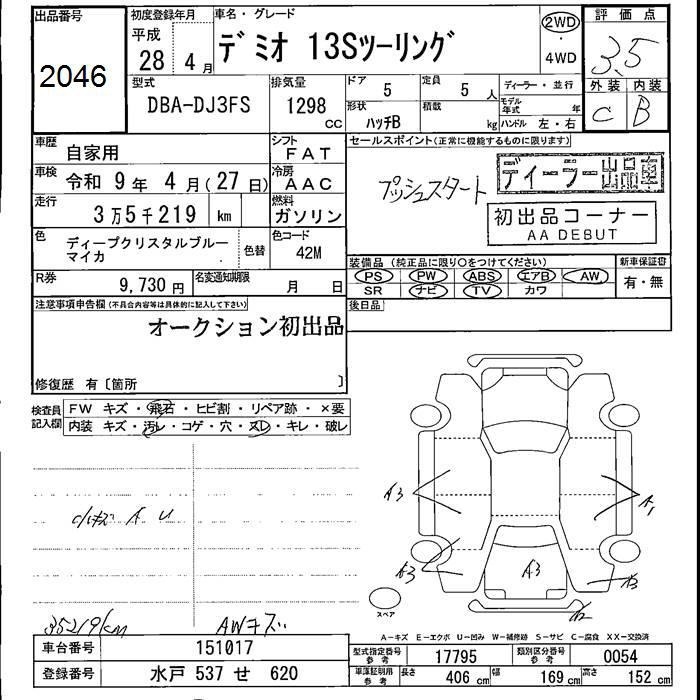 出品番号
2046
初度登録年月
平成
28 4月
車名・グレード
デミオ 13Sツーリング
2WD
・
4WD
評価点
3.5
外装 内装
C B
型式
DBA-DJ3FS
排気量
1298 CC
ドア
5
定員
5 人
形状
ハッチB
積載
kg
ディーラー・並行
モデル年式 年
ハンドル 左・右
車歴 自家用
シフト FAT
車検 令和 9年 4月(27日)
冷房 AAC
走行 3万5千219 km
燃料 ガソリン
色 ディープクリスタルブルー
マイカ
色替
色コード 42M
R券 9,730 円
名変通知期限 月 日
セールスポイント(正常に機能するものに限ります)
プッシュスタート
ディーラー出品車
初出品コーナー
AA DEBUT
装備品 (純正品に限り○をつけてください)
PS PW ABS エアB AW
SR ナビ TV カワ
新車保証書
有・無
後日品
注意事項申告欄(不具合内容等は具体的に記入して下さい)
オークション初出品
修復歴 有〔箇所 〕
検査員
記入欄
FW キズ・飛石・ヒビ割・リペア跡・×要
内装 キズ・汚レ・コゲ・穴・スレ・キレ・破レ
A U
35219km
AWキズ
A3
A1
A3
A3
A3
A2
スペア
A-キズ E-エクボ U-凹み W-補修跡 S-サビ C-腐食 XX-交換済
車台番号 151017
登録番号 水戸 537 せ 620
型式指定番号 参考 17795
類別区分番号 参考 0054
車庫証明用 参考 長さ 406 cm 幅 169 cm 高さ 152 cm